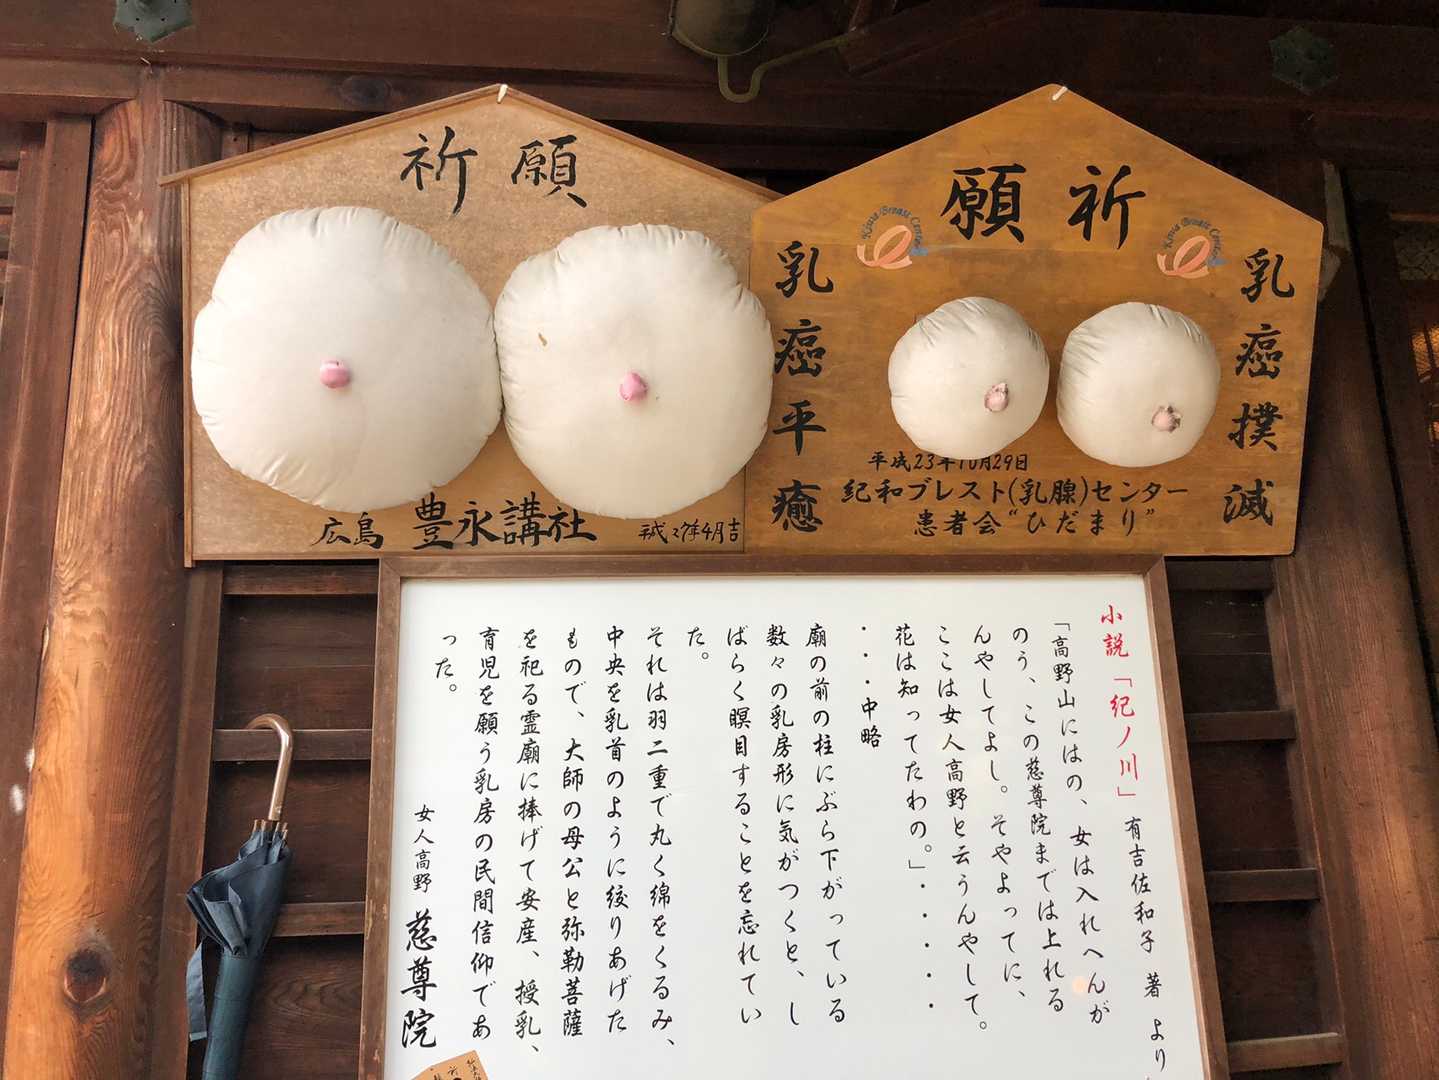 祈願
広島 豊永講社
平成27年4月吉
願祈
Kiwa Breast Center
Kiwa Breast Center
乳癌撲滅
乳癌平癒
平成23年10月29日
紀和ブレスト(乳腺)センター
患者会“ひだまり”
小説「紀ノ川」 有吉佐和子 著 より
「高野山にはの、女は入れへんが
のう、この慈尊院までは上れる
んやしてよし。そやよってに、
ここは女人高野と云うんやして。
花は知ってたわの。」・・・・・
・・・中略
廟の前の柱にぶら下がっている
数々の乳房形に気がつくと、し
ばらく瞑目することを忘れてい
た。
それは羽二重で丸く綿をくるみ、
中央を乳首のように絞りあげた
もので、大師の母公と弥勒菩薩
を祀る霊廟に捧げて安産、授乳、
育児を願う乳房の民間信仰であ
った。
女人高野 慈尊院